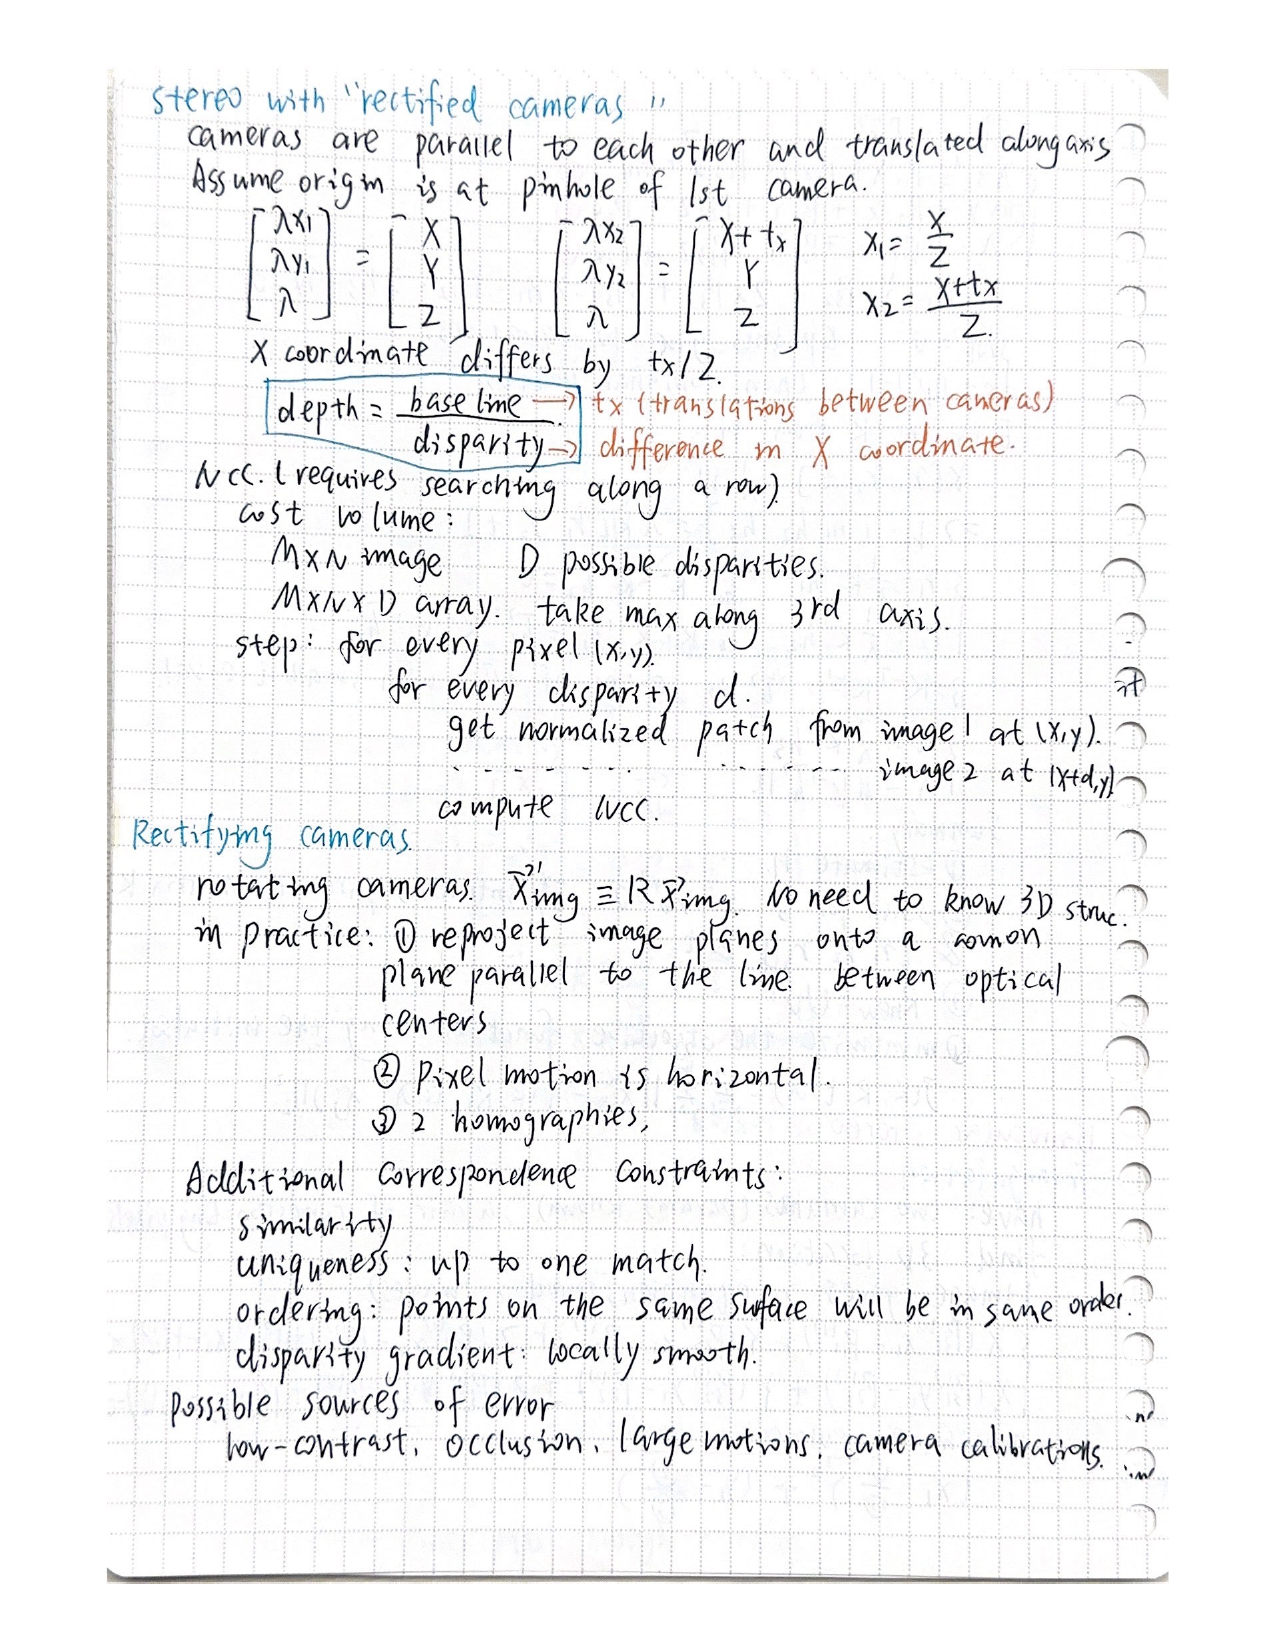 stereo with "rectified cameras"
cameras are parallel to each other and translated along axis
Assume origin is at pinhole of 1st camera.
[λx1 λy1 λ] = [X Y Z] [λx2 λy2 λ] = [X+tx Y Z] x1 = X/Z
x2 = X+tx/Z.
X coordinate differs by tx/Z.
depth = base line/disparity → tx (translations between cameras)
→ difference in X coordinate.
NCC. (requires searching along a row)
cost volume:
M×N image D possible disparities.
M×N×D array. take max along 3rd axis.
step: for every pixel (x,y).
for every disparity d.
get normalized patch from image 1 at (x,y).
- - - - - - - - - - - - - - image 2 at (x+d,y)
compute NCC.
Rectifying cameras.
rotating cameras. x⃗'img ≡ R x⃗img. No need to know 3D struc.
in practice: ① reproject image planes onto a comon
plane parallel to the line between optical
centers
② pixel motion is horizontal.
③ 2 homographies,
Additional Correspondence Constraints:
similarity
uniqueness: up to one match.
ordering: points on the same surface will be in same order.
disparity gradient: locally smooth.
Possible sources of error
low-contrast, occlusion, large motions, camera calibrations.